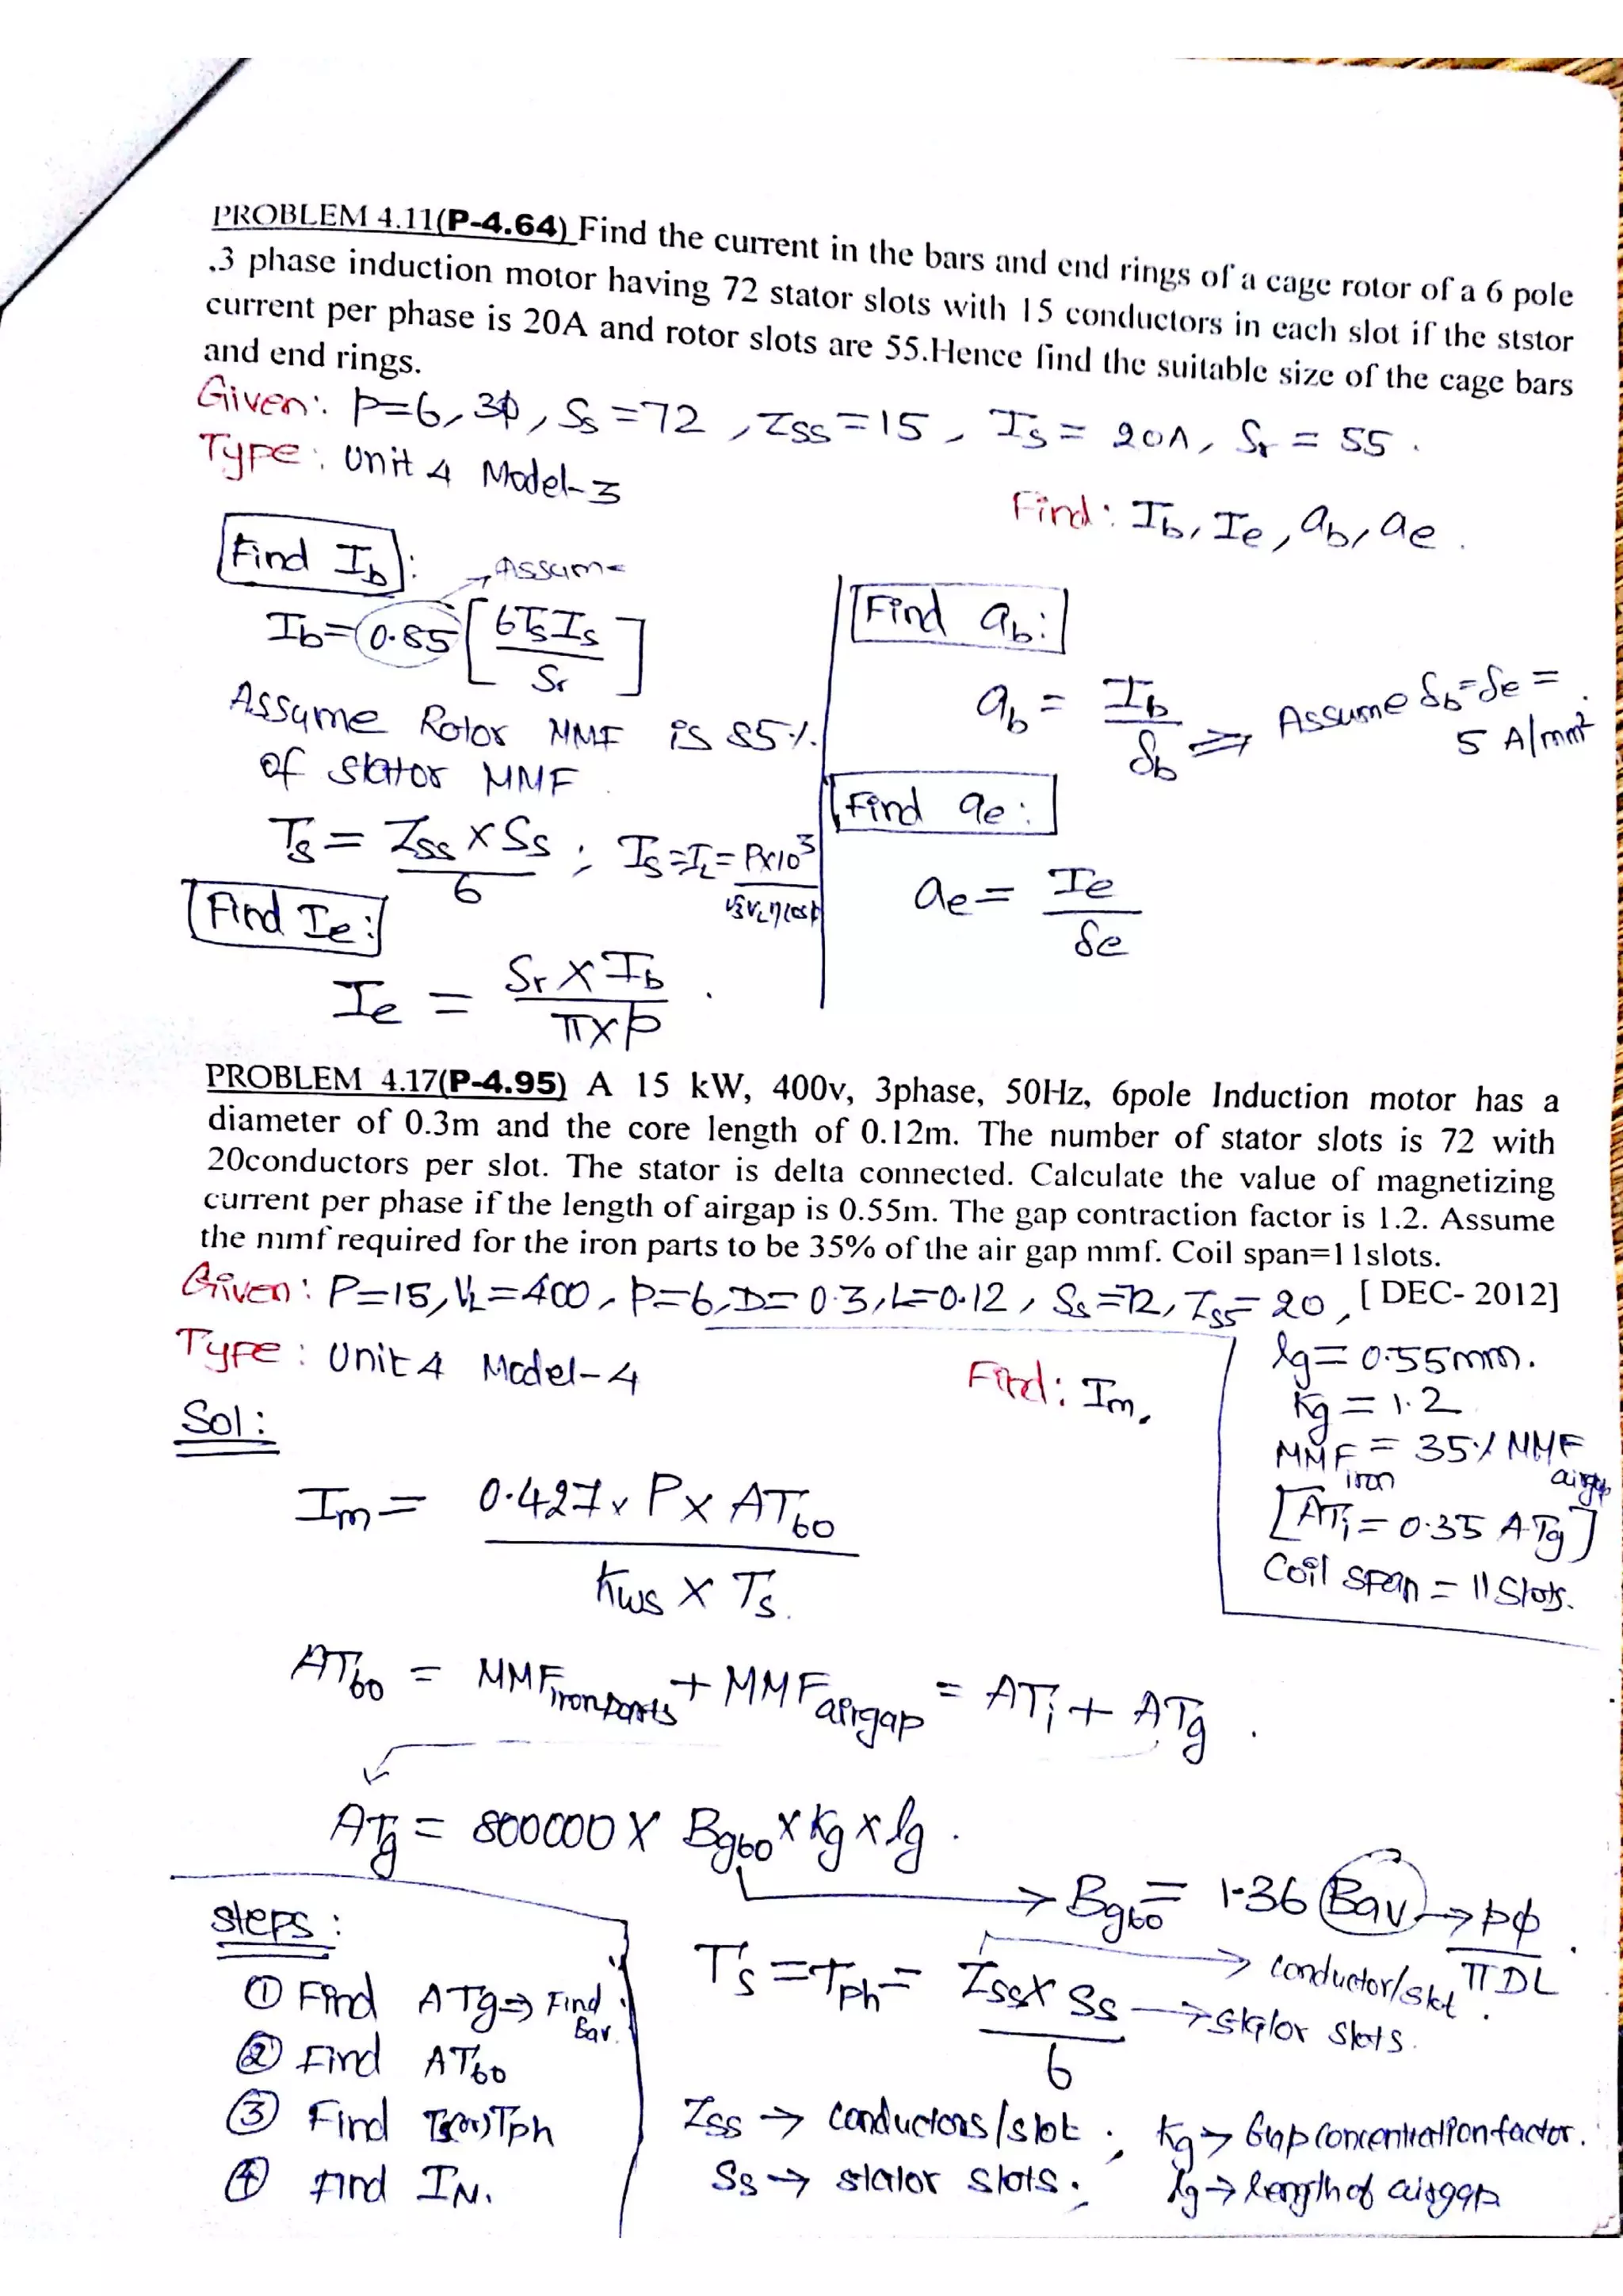 PROBLEM 4.11(P-4.64) Find the current in the bars and end rings of a cage rotor of a 6 pole
,3 phase induction motor having 72 stator slots with 15 conductors in each slot if the ststor
current per phase is 20A and rotor slots are 55.Hence find the suitable size of the cage bars
and end rings.
Given: p=6, 3ϕ, Ss=72, Zss=15, Is=20A, Sr=55.
Type: Unit 4 Model-3
Find: Ib, Ie, ab, ae.
Find Ib:
Assume
Ib=0.85[6TsIs/Sr]
Assume Rotor MMF is 85%
of stator MMF
Ts=Zss×Ss/6; Is=IL=P×10³/√3VLηcosϕ
Find Ie:
Ie=Sr×Ib/π×p.
Find ab:
ab=Ib/δb ⇒ Assume δb=δe=
5 A/mm²
Find ae:
ae=Ie/δe
PROBLEM 4.17(P-4.95) A 15 kW, 400v, 3phase, 50Hz, 6pole Induction motor has a
diameter of 0.3m and the core length of 0.12m. The number of stator slots is 72 with
20conductors per slot. The stator is delta connected. Calculate the value of magnetizing
current per phase if the length of airgap is 0.55m. The gap contraction factor is 1.2. Assume
the mmf required for the iron parts to be 35% of the air gap mmf. Coil span=11slots.
[DEC- 2012]
Given: P=15, VL=400, p=6, D=0.3, L=0.12, Ss=72, Zss=20,
lg=0.55mm.
Kg=1.2
MMF iron=35% MMF airgap
[ATi=0.35 ATg]
Coil span=11 Slots.
Type: Unit 4 Model-4
Find: Im.
Sol:
Im=0.427×P×AT60/Kws×Ts.
AT60=MMF ironparts+MMF airgap=ATi+ATg.
ATg=800000×Bg60×Kg×lg.
→ Bg60=1.36 Bav → pϕ/πDL.
Ts=Tph=Zss×Ss/6
→ conductor/slot.
→ stator slots.
Zss → conductors/slot; Kg → Gap concentration factor.
Ss → stator slots; lg → length of airgap
steps:
① Find ATg ⇒ Find Bav.
② Find AT60
③ Find Ts(or)Tph
④ Find IN.